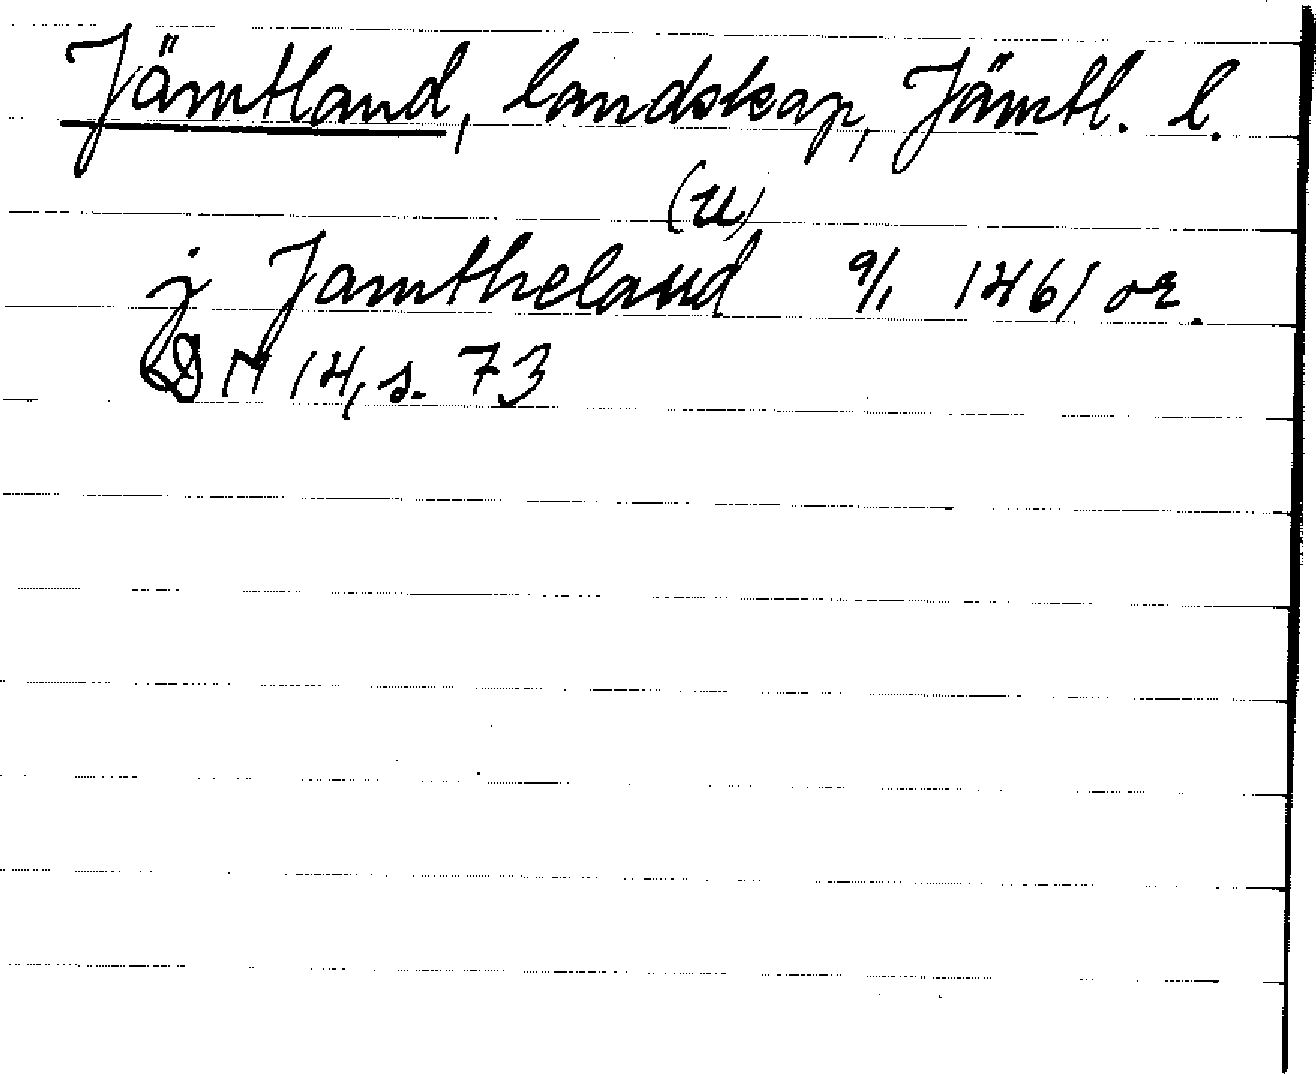 Jämtland, landskap, Jämtl. l.
(u)
j Jamtheland 9/1 1461 or.
DN 14, s. 73